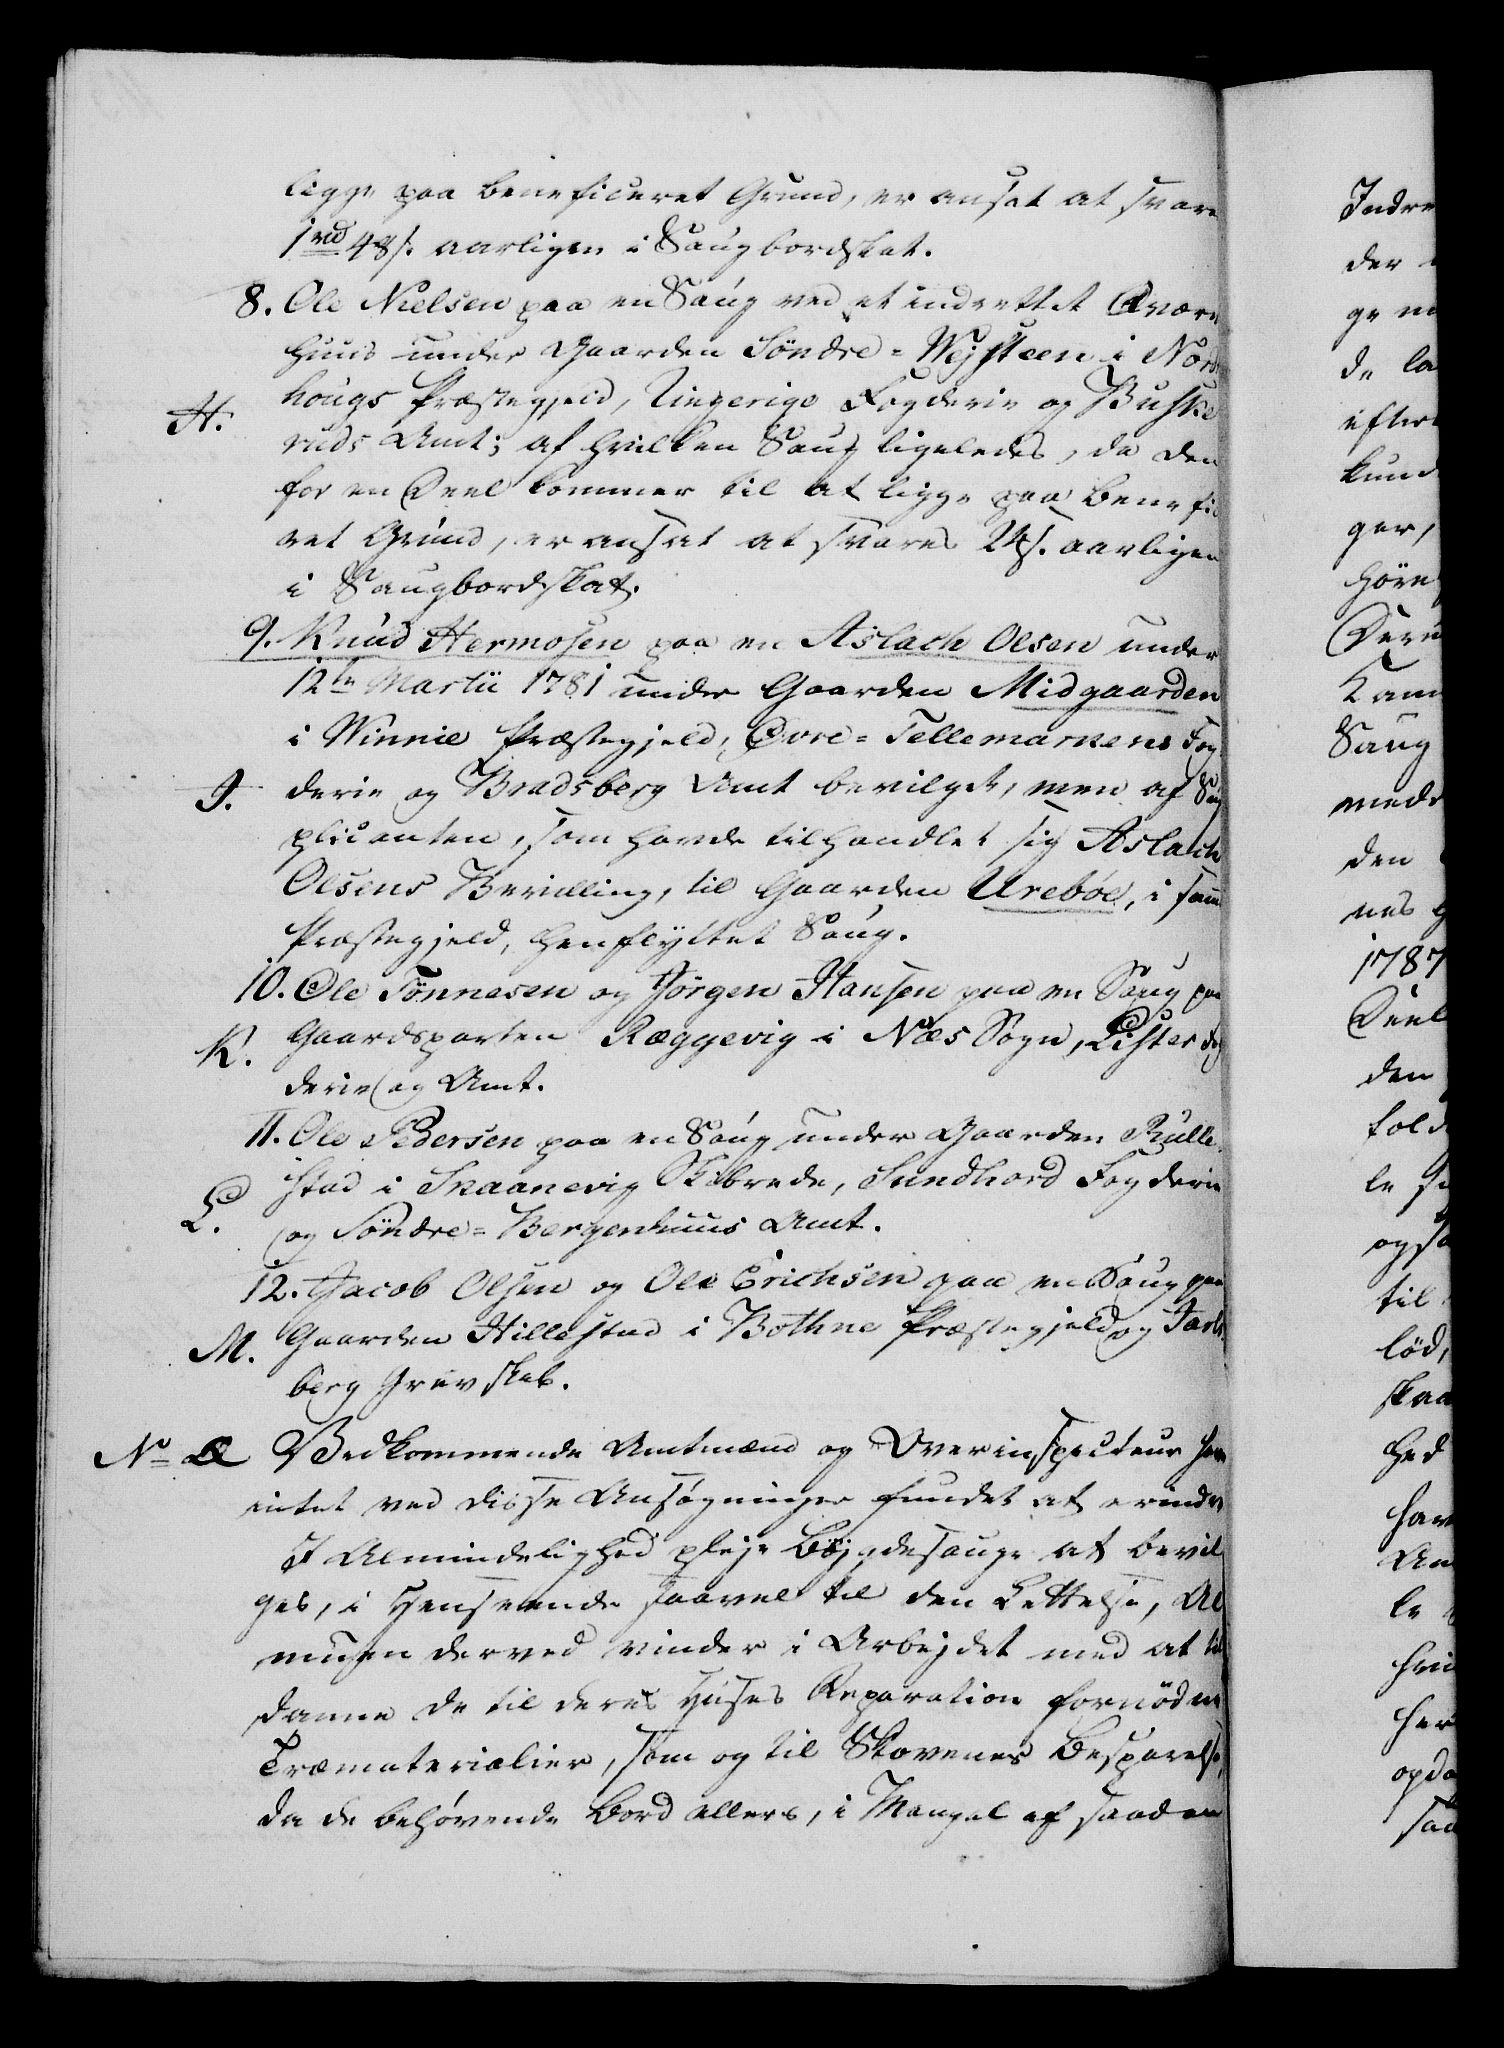 ligge paa beneficeret Grund, er ansat at svare
1 rd 48 s. aarligen i Saugbordskat.
8. Ole Nielsen paa en Saug ved et indrettet Qværn
huus under Gaarden Söndre=Wejsteen i Nord
hougs Præstegjeld, Ringerige Fogderie og Buske
H.
ruds Amt; af hvilken Saug ligeledes, da den
for en Deel kommer til at ligge paa benefic
ret Grund, er ansat at svares aarligen
i Saugbordskat.
9. Knud Hermosen paa en Aslach Olsen under
12te Martii 1781 under Gaarden Midgaarden
i Winnie Præstegjeld, Övre=Tellemarkens Fog
J.
derie og Bradsberg Amt bevilget, men af Sup
plicanten, som havde tilhandlet sig Aslach
Olsens Bevilling, til Gaarden Ureböe, i samme
Præstegjeld, henflyttet Saug.
10. Ole Tönnesen og Jörgen Hansen paa en Saug paa
K.
Gaardsparten Ræggevig i Næs Sogn, Lister Fog
derie og Amt.
11. Ole Pedersen paa en Saug under Gaarden Rulle
stad i Skaanevig Skibrede, Sundhord Fogderie
L.
og Söndre=Bergenhuus Amt.
12. Jacob Olsen og Ole Erichsen paa en Saug paa
M.
Gaarden Hillestad i Bothne Præstegjeld og Jarls
berg Grevskab.
No Æ Vedkommende Amtmænd og Overinspecteur have
intet ved disse Ansøgninger fundet at erindre
I Almindelighed pleje Bøjgdesauge at bevil
ges, i Henseende saavel til den Lettelse, Al
muen derved vinder i Arbejdet med at til
danne de til deres Huses Reparation fornödne
Træmaterialier, som og til Skovenes Besparelse,
da de behövende Bord ellers, i Mangel af saadan
Indre
der
ge
de la
efter
kund
ger,
höre
Deru
Kam
Saug
med
den
nes
1787
Deel
den
fold
le
ogsa
til
löd,
skaa
hed
hav
Am
le
hvi
her
opda
saa